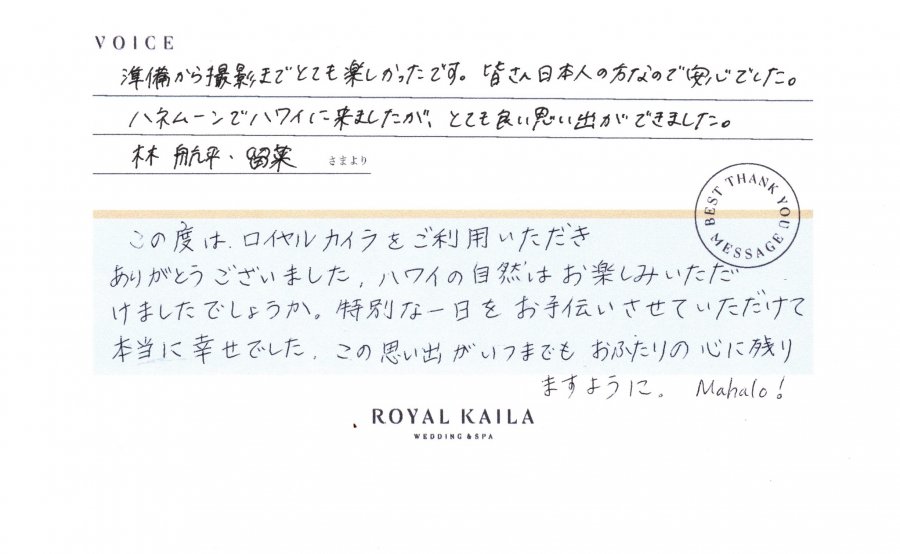 VOICE
準備から撮影までとても楽しかったです。皆さん日本人の方なので安心でした。
ハネムーンでハワイに来ましたが、とても良い思い出ができました。
林 航平・留菜 さまより
BEST THANK YOU MESSAGE
この度は、ロイヤルカイラをご利用いただき
ありがとうございました。ハワイの自然はお楽しみいただ
けましたでしょうか。特別な一日をお手伝いさせていただけて
本当に幸せでした。この思い出がいつまでもおふたりの心に残り
ますように。 Mahalo!
ROYAL KAILA
WEDDING & SPA